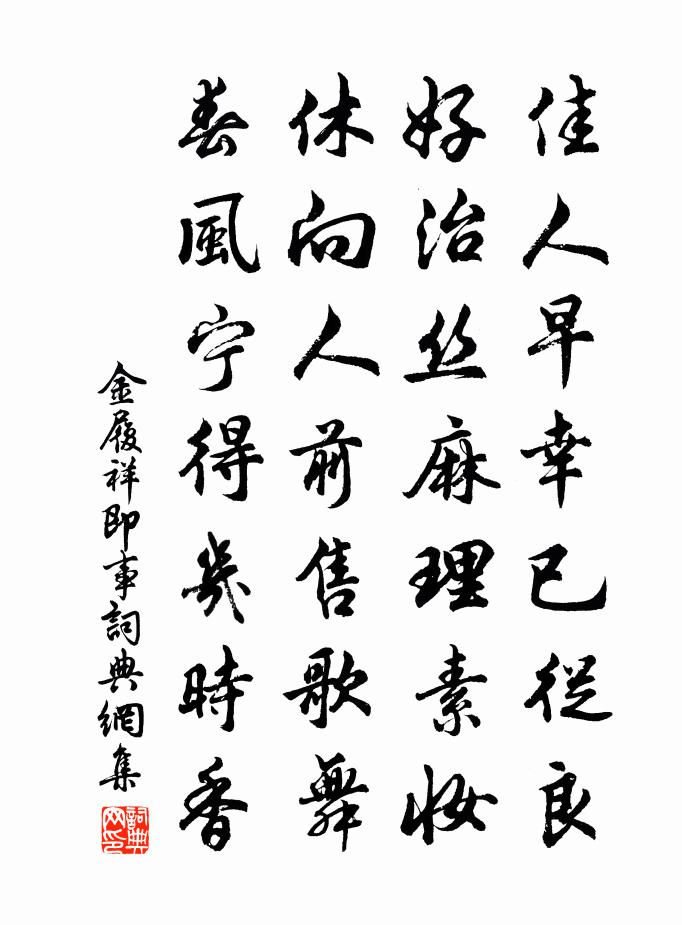 佳人早幸已從良
好治丝麻理素妝
休向人前售歌舞
春風宁得幾時香
金履祥即事詞典網集
詞典网印